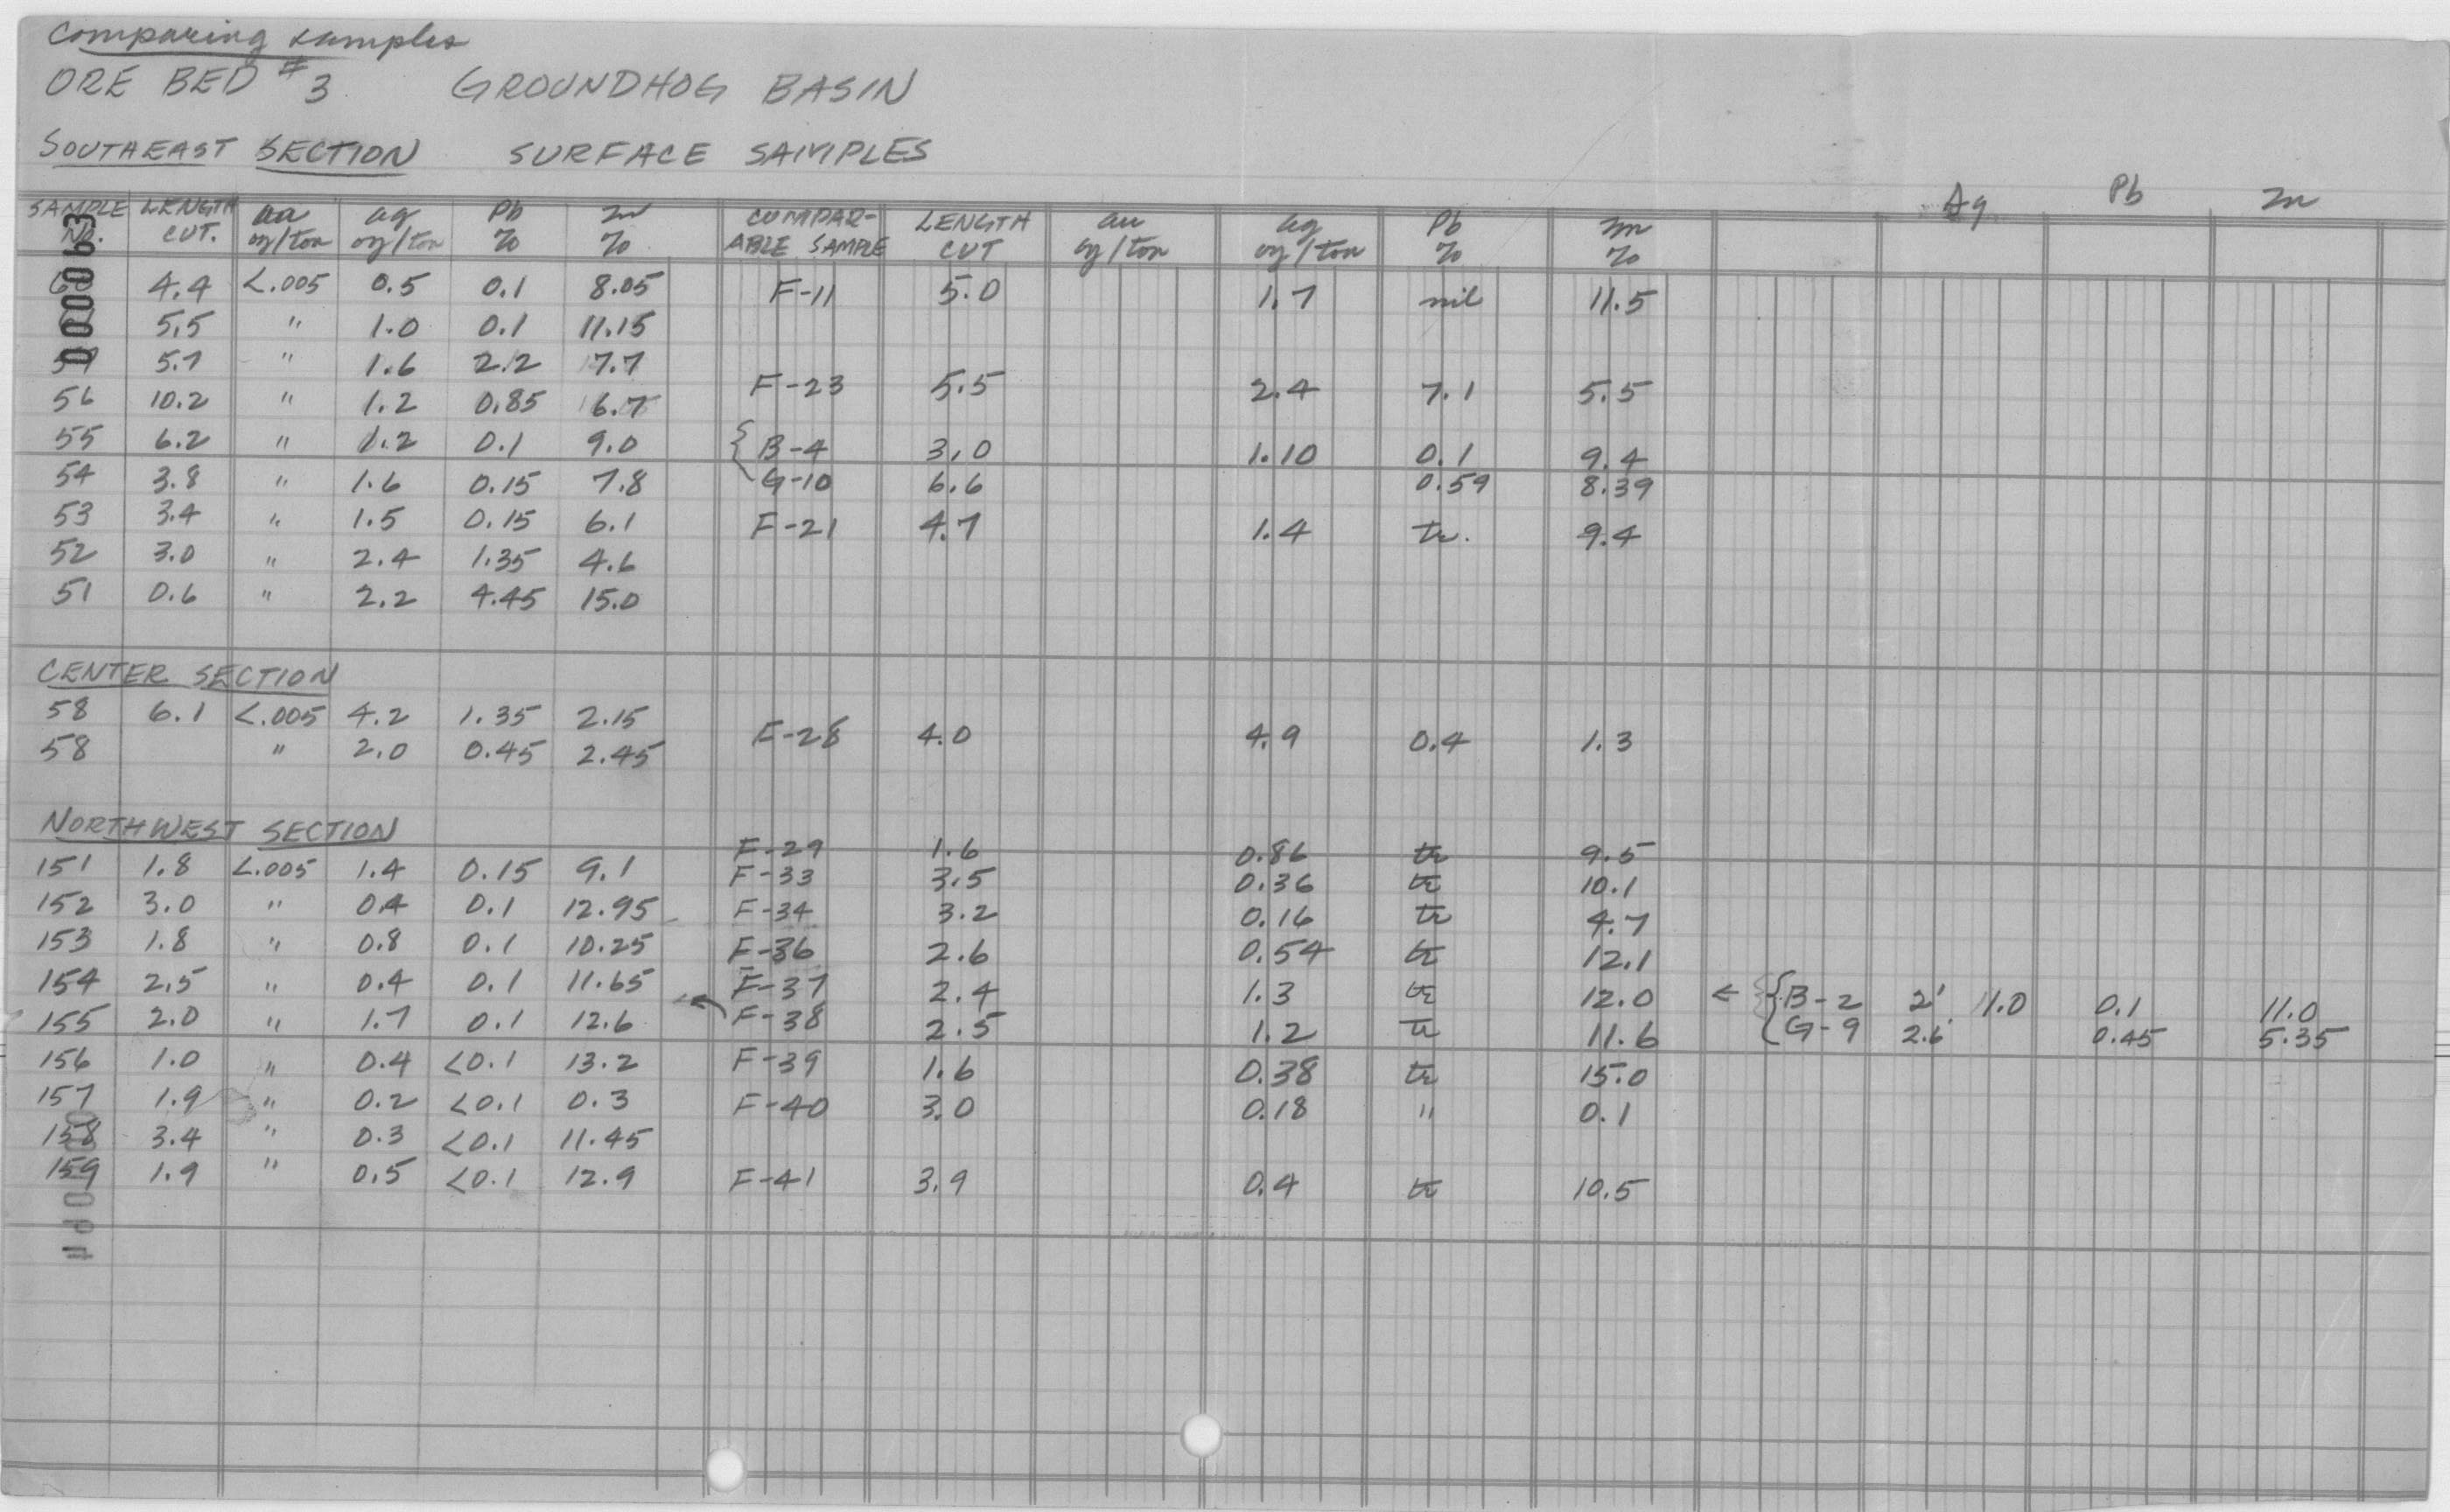 Comparing samples
ORE BED #3 GROUNDHOG BASIN
SOUTHEAST SECTION SURFACE SAMPLES
Ag Pb Zn
SAMPLE NO. LENGTH CUT. au oz/ton ag oz/ton Pb % Zn % COMPAR-ABLE SAMPLE LENGTH CUT au oz/ton ag oz/ton Pb % Zn %
000063
4.4 <.005 0.5 0.1 8.05 F-11 5.0 1.7 nil 11.5
5.5 " 1.0 0.1 11.15
5.7 " 1.6 2.2 7.7
F-23 5.5 2.4 7.1 5.5
56 10.2 " 1.2 0.85 6.7
55 6.2 " 1.2 0.1 9.0 { B-4 3.0 1.10 0.1 9.4
54 3.8 " 1.6 0.15 7.8 G-10 6.6 0.59 8.39
53 3.4 " 1.5 0.15 6.1 F-21 4.7 1.4 tr. 9.4
52 3.0 " 2.4 1.35 4.6
51 0.6 " 2.2 4.45 15.0
CENTER SECTION
58 6.1 <.005 4.2 1.35 2.15
F-28 4.0 4.9 0.4 1.3
58 " 2.0 0.45 2.45
NORTHWEST SECTION
F-29 1.6 0.86 tr 9.5
151 1.8 <.005 1.4 0.15 9.1 F-33 3.5 0.36 tr 10.1
152 3.0 " 0.4 0.1 12.95 F-34 3.2 0.16 tr 4.7
153 1.8 " 0.8 0.1 10.25 F-36 2.6 0.54 tr 12.1
154 2.5 " 0.4 0.1 11.65 F-37 2.4 1.3 tr 12.0 ← { B-2 2' 1.0 0.1 11.0
155 2.0 " 1.7 0.1 12.6 ← F-38 2.5 1.2 tr 11.6 G-9 2.6' 0.45 5.35
156 1.0 " 0.4 <0.1 13.2 F-39 1.6 0.38 tr 15.0
157 1.9 " 0.2 <0.1 0.3 F-40 3.0 0.18 " 0.1
158 3.4 " 0.3 <0.1 11.45
159 1.9 " 0.5 <0.1 12.9 F-41 3.9 0.4 tr 10.5